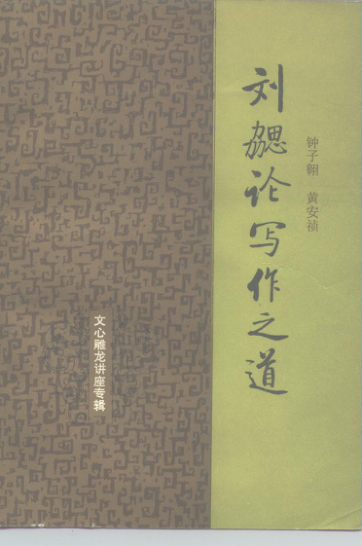 刘勰论写作之道
钟子翱 黄安祯
文心雕龙讲座专辑